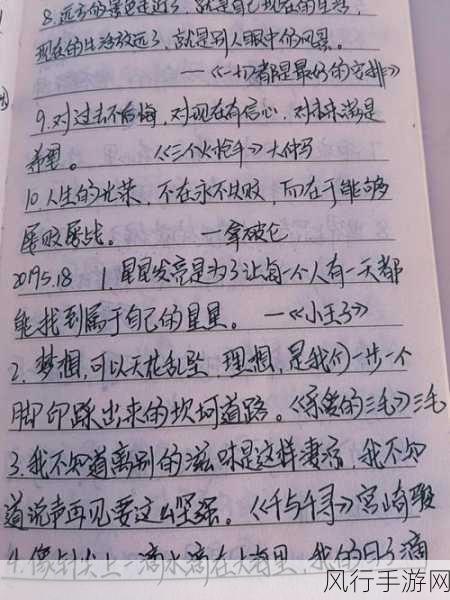 8.远方的景色走近了,就是自己现在的生活,
现在的生活放远了,就是别人眼中的风景。
—《一切都是最好的安排》
9.对过去不后悔,对现在有信心,对未来满是
希望。 《三个火枪手》大仲马
10.人生的光荣,不在永不失败,而在于能够
屡败屡战。 —拿破仑
2019.5.18 1.星星发亮是为了让每一个人有一天都
能找到属于自己的星星。 —《小王子》
2.梦想,可以天花乱坠,理想,是我们一步一个
脚印踩出来的坎坷道路。《亲爱的三毛》三毛
3.我不知道离别的滋味是这样凄凉,我不知
道说声再见要这么坚强。《千与千寻》宫崎骏
4.像针尖上一滴水滴在大海里,我的日子滴
风行手游网